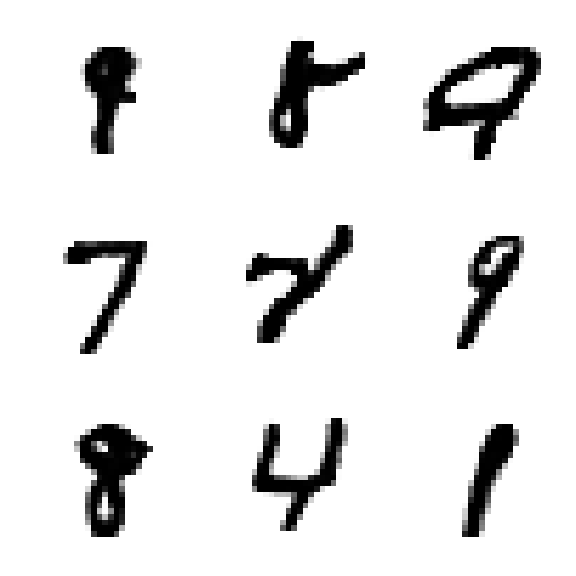 9 8 9
7 9
8 4 1